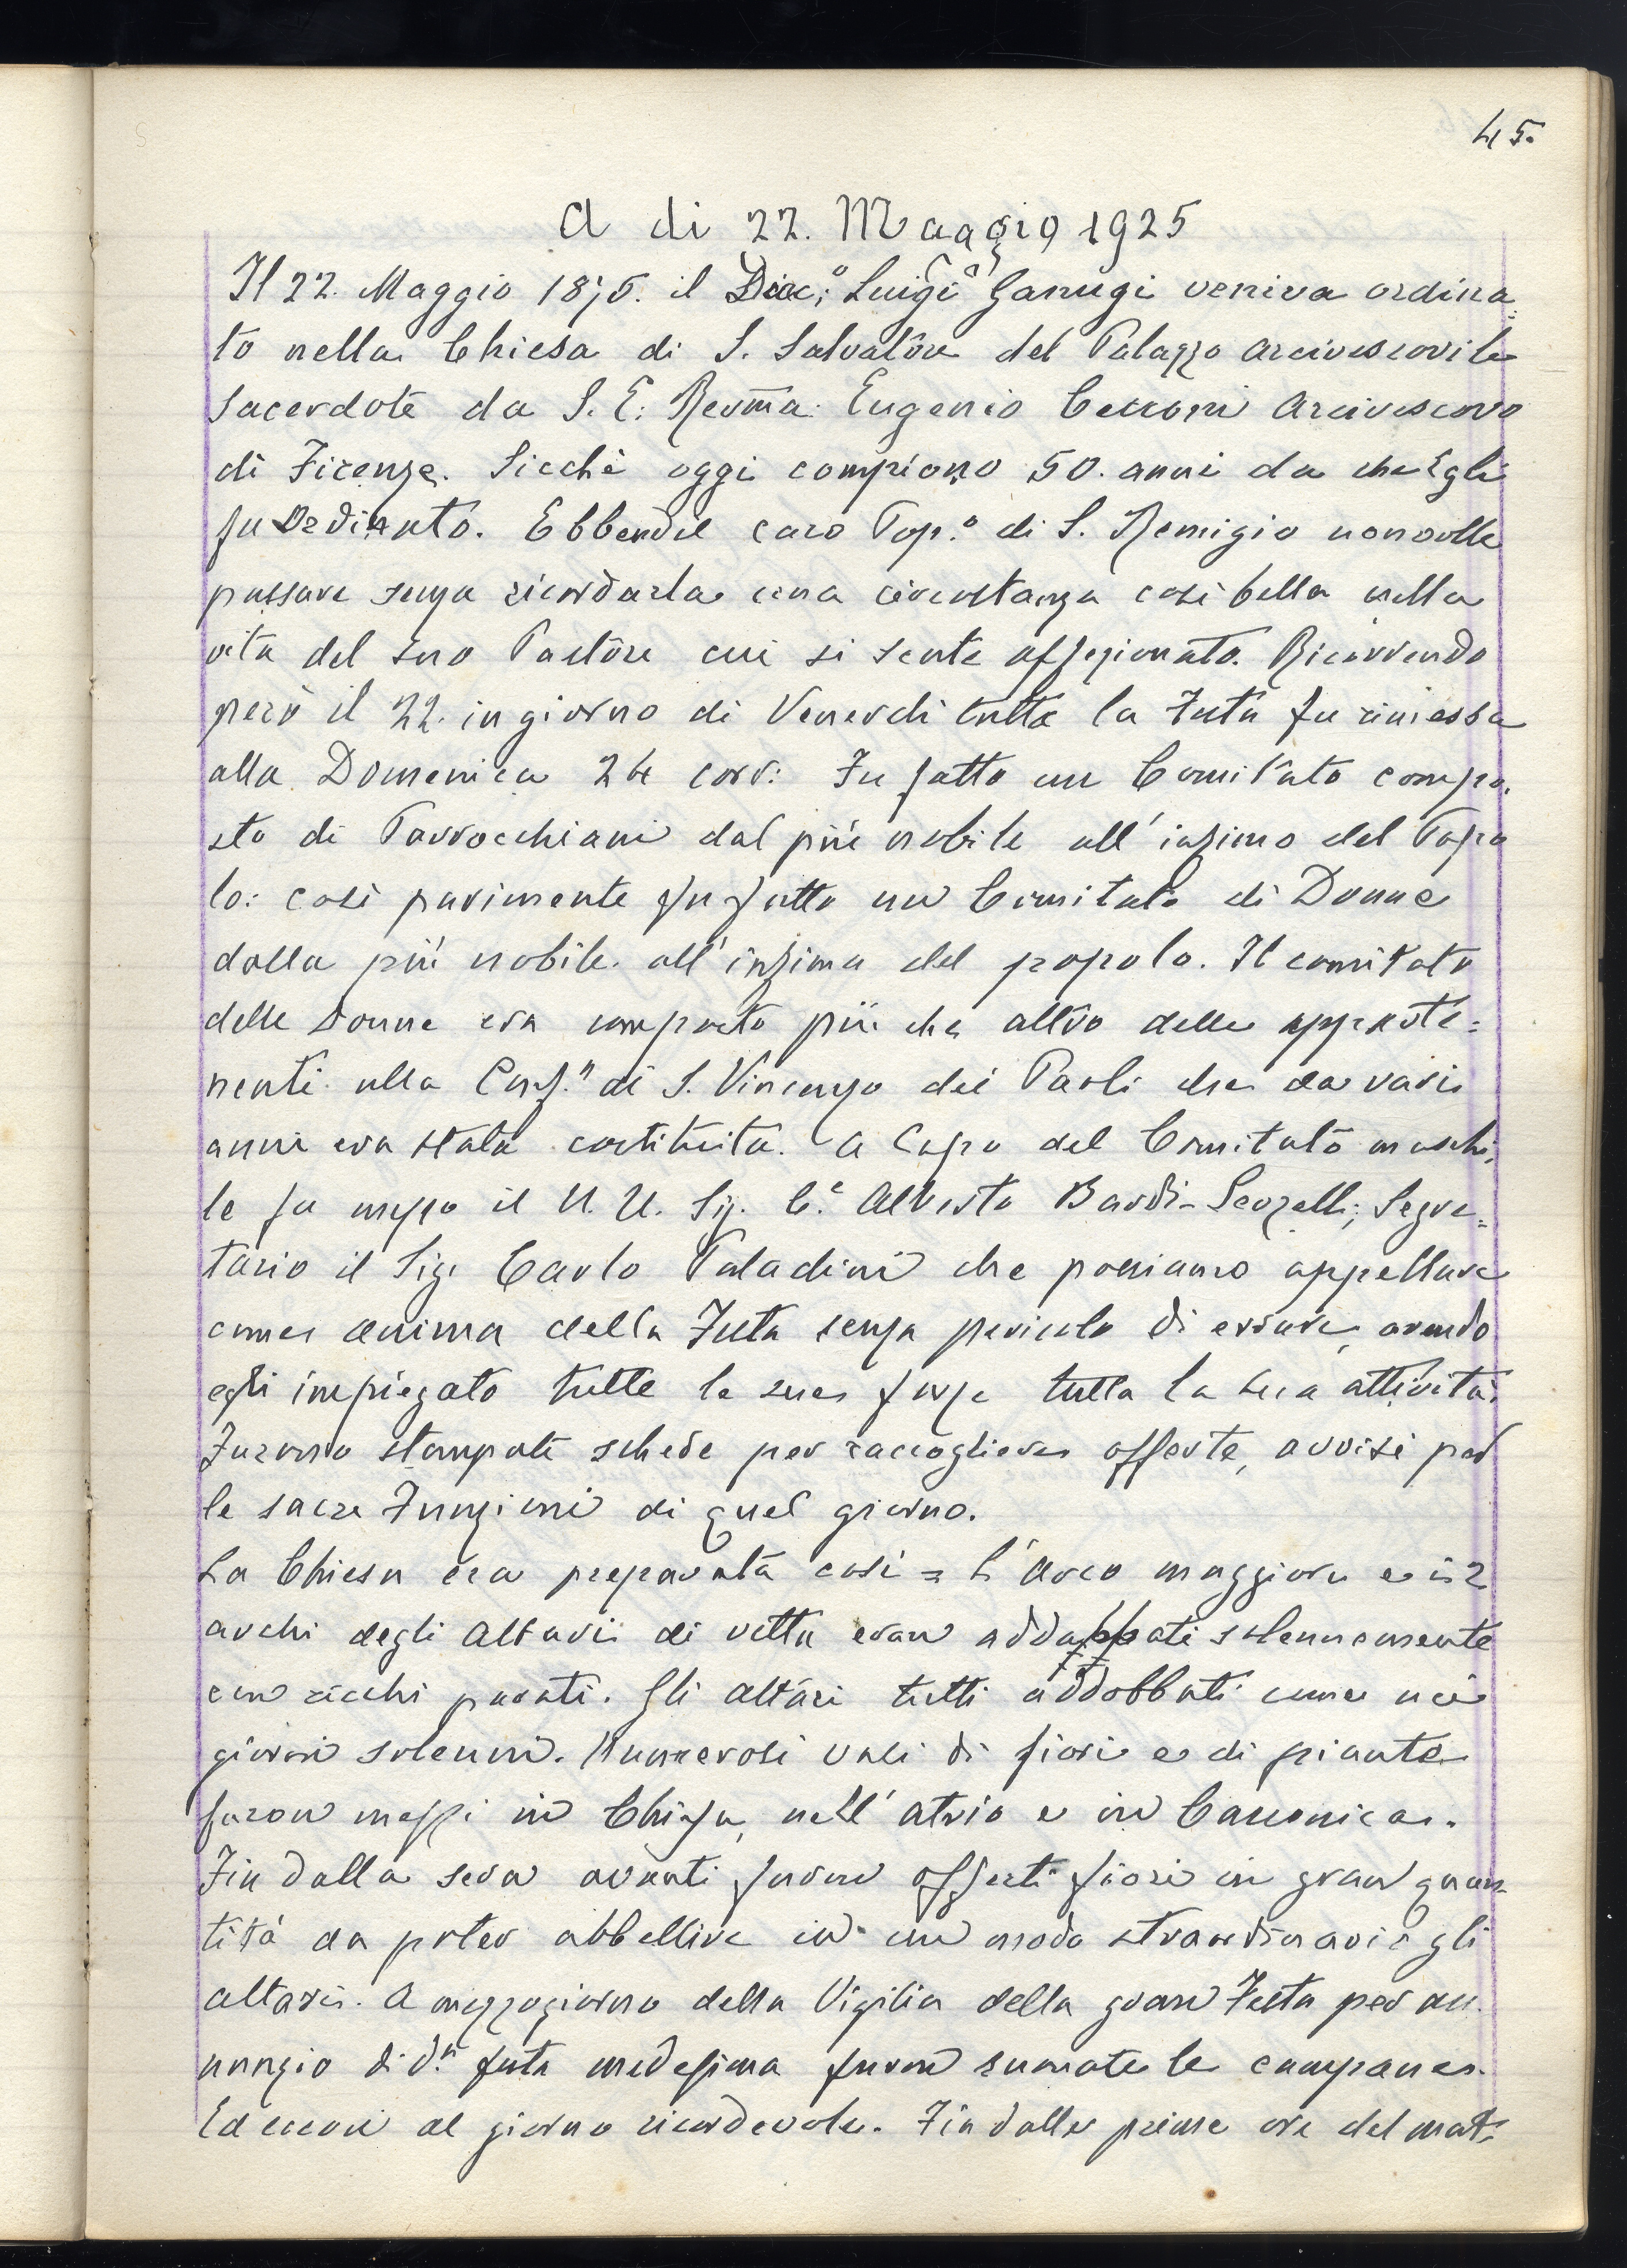 45.
A di 22. Maggio 1925
Il 22. Maggio 1875. il Diac:º Luigi Ganugi veniva ordina=
to nella Chiesa di S. Salvatore del Palazzo Arcivescovile
Sacerdote da S. E. Revm̃a Eugenio Cecconi Arcivescovo
di Firenze. Sicchè oggi compiono 50. anni da che Egli
fu Ordinato. Ebbene il caro Pop.º di S. Remigio non volle
passare senza ricordarla una circostanza così bella nella
vita del suo Pastore cui si sente affezionato. Ricorrendo
però il 22. in giorno di Venerdi tutta la Festa fu rimessa
alla Domenica 24 corr: Fu fatto un Comitato compo=
sto di Parrocchiani dal più nobile all'infimo del Popo
lo: così parimente fu fatto un Comitato di Donne
dalla più nobile all'infima del popolo. Il comitato
delle Donne era composto più che altro delle apparte=
nenti alla Conf.ª di S. Vincenzo dei Paoli che da varii
anni era stata costituita. A Capo del Comitato maschi=
le fu messo il N. U. Sig. C.e Alberto Bardi-Serzelli; Segre=
tario il Sig. Carlo Paladini che possiamo appellare
come anima della Festa senza pericolo di errare, avendo
egli impiegato tutte le sue forze tutta la sua attività.
Furono stampate schede per raccogliere offerte, avvisi per
le sacre Funzioni di quel giorno.
La Chiesa era preparata così = L'Arco maggiore e i 2
archi degli Altari di vetta eran addappati solennemente
con ricchi parati. Gli altari tutti addobbati come nei
giorni solenni. Numerosi vasi di fiori e di piante
furon messi in Chiesa, nell'atrio e in Canonica.
Fin dalla sera avanti furon offerti fiori in gran quan=
tità da poter abbellire in un modo straordinario gli
altari. A mezzogiorno della Vigilia della gran Festa per an
nunzio di d.ª festa medesima furon suonate le campane.
Ed eccoci al giorno ricordevole. Fin dalle prime ore del mat=